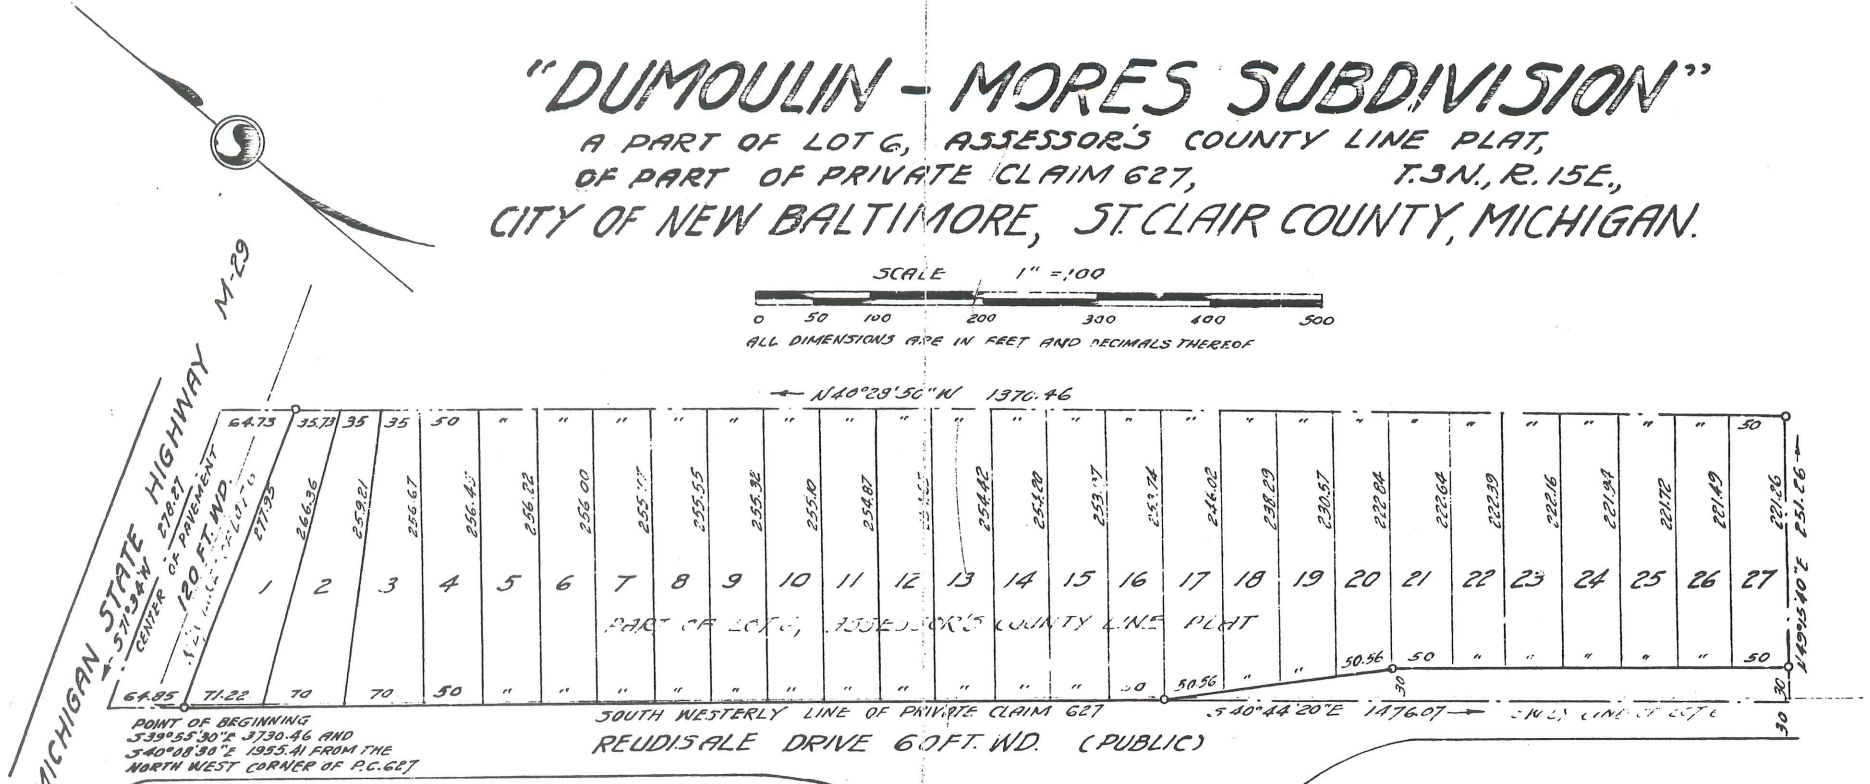 "DUMOULIN - MORES SUBDIVISION"
A PART OF LOT 6, ASSESSOR'S COUNTY LINE PLAT,
OF PART OF PRIVATE CLAIM 627, T.3N., R.15E.,
CITY OF NEW BALTIMORE, ST. CLAIR COUNTY, MICHIGAN.
SCALE 1" = 100
0 50 100 200 300 400 500
ALL DIMENSIONS ARE IN FEET AND DECIMALS THEREOF
MICHIGAN STATE HIGHWAY M-29
S71°34'W 278.27
CENTER OF PAVEMENT
120 FT. WD.
LINE OF LOT 6
N40°29'50"W 1370.46
64.73 35.73 35 35 50 " " " " " " " " " " " " " " " " " " " " " " 50
277.95 266.36 259.21 256.67 256.45 256.22 256.00 255.55 255.32 255.10 254.87 254.42 254.20 253.74 246.02 238.29 230.57 222.84 222.64 222.39 222.16 221.94 221.72 221.49 221.26
N49°15'40"E 251.26
1 2 3 4 5 6 7 8 9 10 11 12 13 14 15 16 17 18 19 20 21 22 23 24 25 26 27
PART OF LOT 6, ASSESSOR'S COUNTY LINE PLAT
64.85 71.22 70 70 50 " " " " " " " " " " " 50 50.56 " " 50.56 50 " " " " " 50
30 30 30
POINT OF BEGINNING
S39°55'30"E 3730.46 AND
S40°08'30"E 1955.41 FROM THE
NORTH WEST CORNER OF P.C. 627
SOUTH WESTERLY LINE OF PRIVATE CLAIM 627
S40°44'20"E 1476.07
S'W'LY LINE OF LOT 6
REUDISALE DRIVE 60 FT. WD. (PUBLIC)